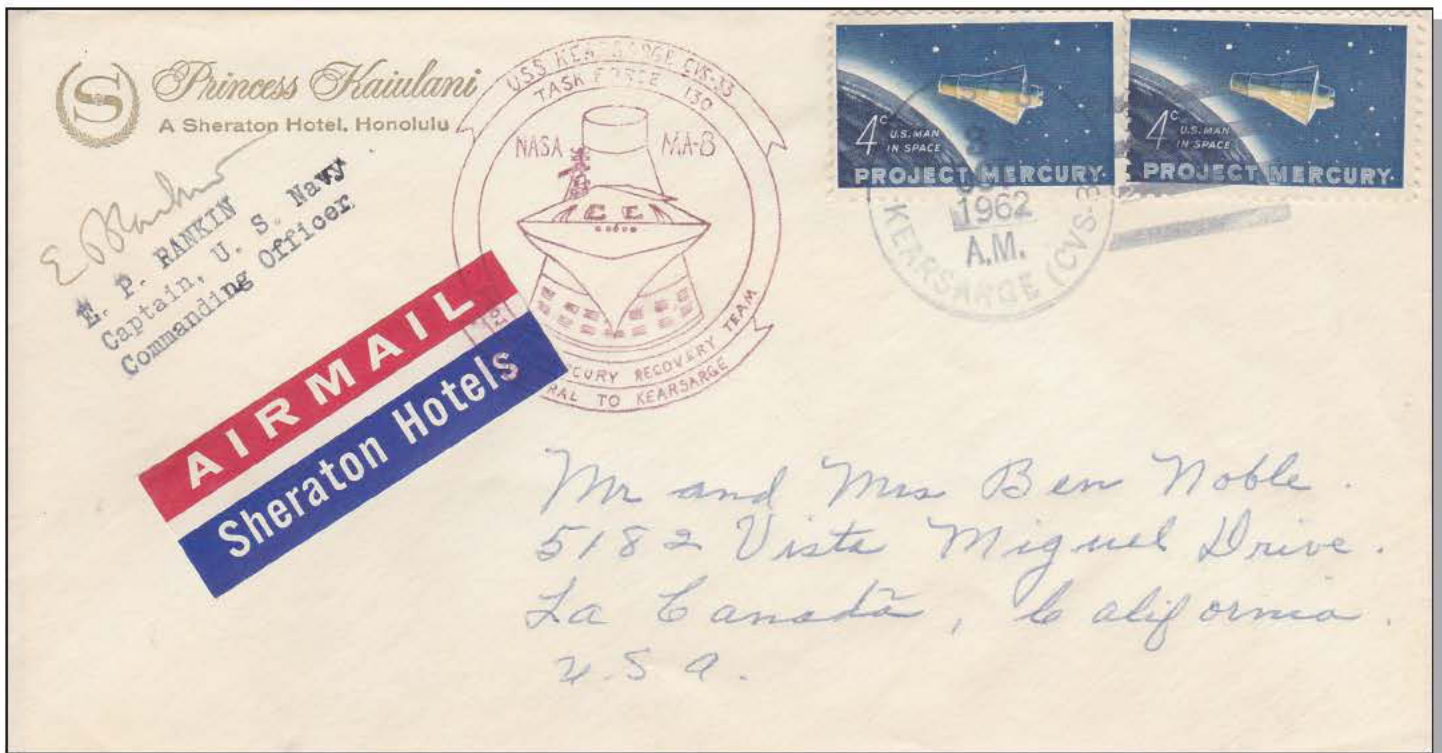 S
Princess Kaiulani
A Sheraton Hotel, Honolulu
E. P. RANKIN
Captain, U. S. Navy
Commanding Officer
AIRMAIL
Sheraton Hotels
USS KEARSARGE CVS-33
TASK FORCE 130
NASA MA-8
CURY RECOVERY TEAM
RAL TO KEARSARGE
4c U.S. MAN
IN SPACE
PROJECT MERCURY
4c U.S. MAN
IN SPACE
PROJECT MERCURY
3
1962
A.M.
KEARSARGE (CVS-3
Mr and Mrs Ben Noble.
5182 Vista Miguel Drive.
La Canada, California.
U.S.A.